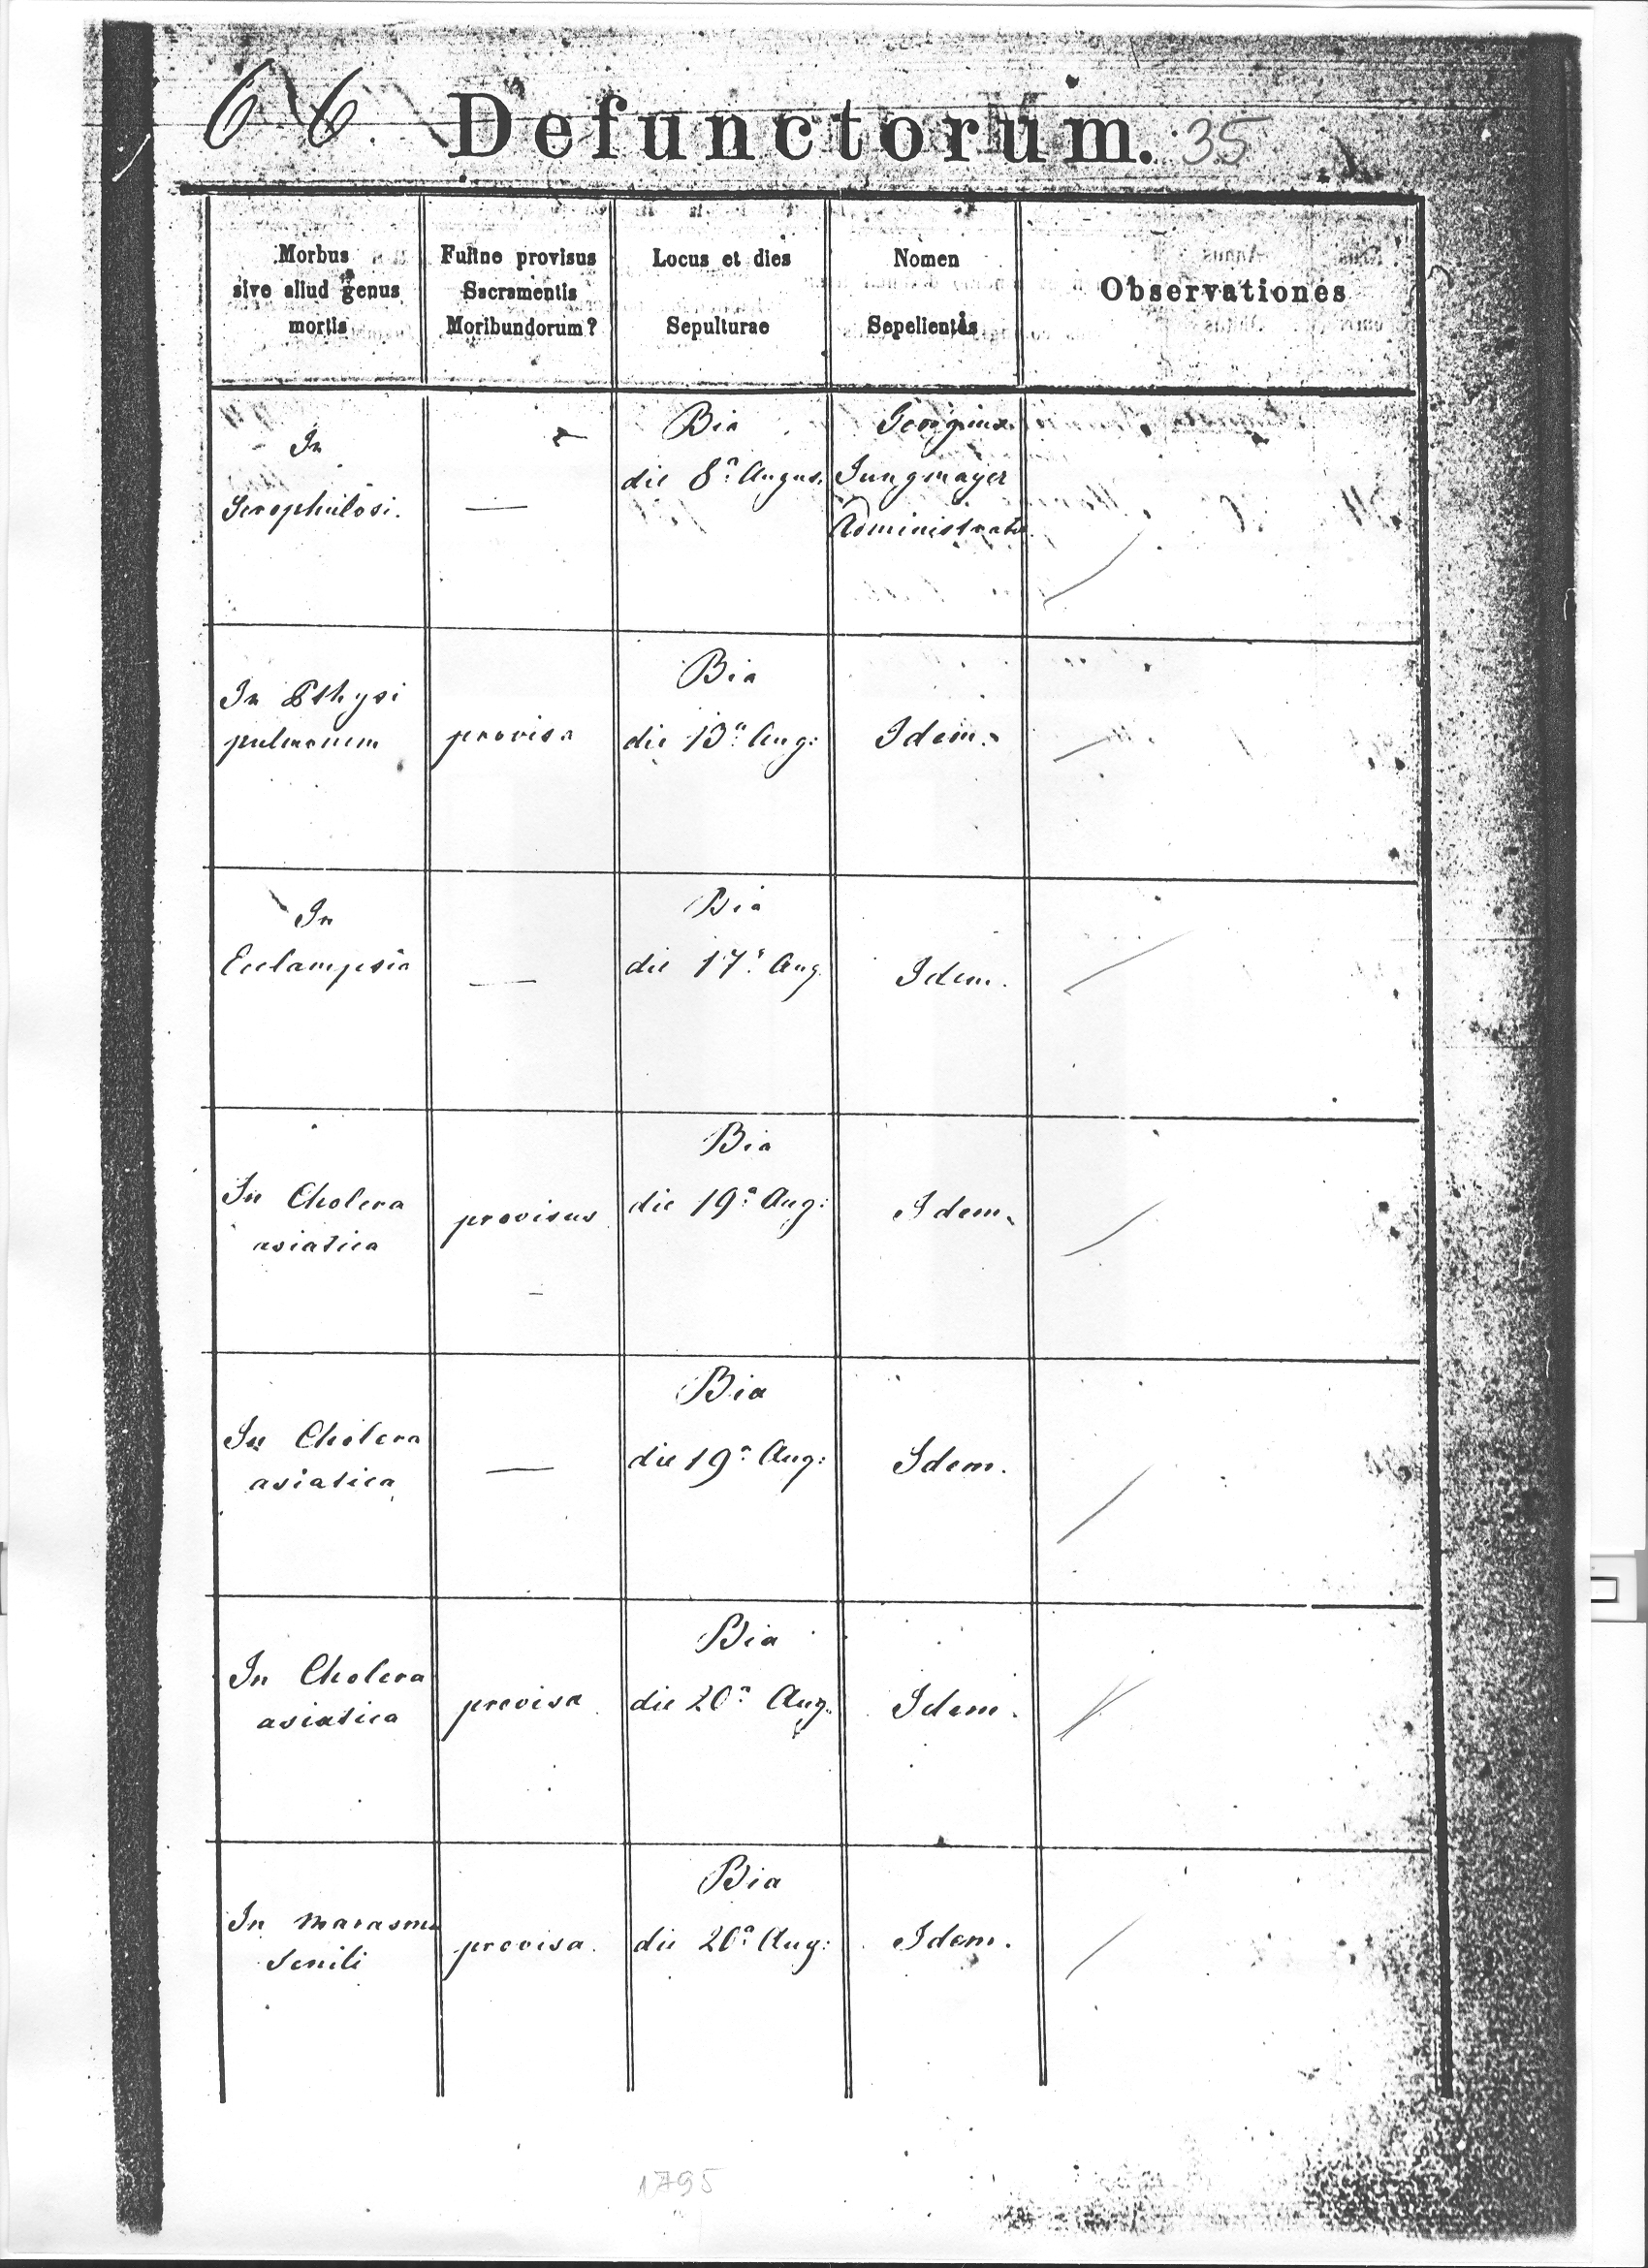 66. Defunctorum. 35
Morbus
sive aliud genus
mortis
Fuitne provisus
Sacramentis
Moribundorum?
Locus et dies
Sepulturae
Nomen
Sepelientis
Observationes
In
Scrophulosi.
—
Bia
die 8ª Augus.
Georgius
Jungmayer
Administrator
In Pthysi
pulmonum
provisa
Bia
die 13ª Aug:
Idem.
In
Ecclampsia
—
Bia
die 17ª Aug.
Idem.
In Cholera
asiatica
provisus
Bia
die 19ª Aug:
Idem.
In Cholera
asiatica
—
Bia
die 19ª Aug:
Idem.
In Cholera
asiatica
provisa
Bia
die 20ª Aug.
Idem.
In marasmo
senili
provisa.
Bia
die 20ª Aug:
Idem.
1795